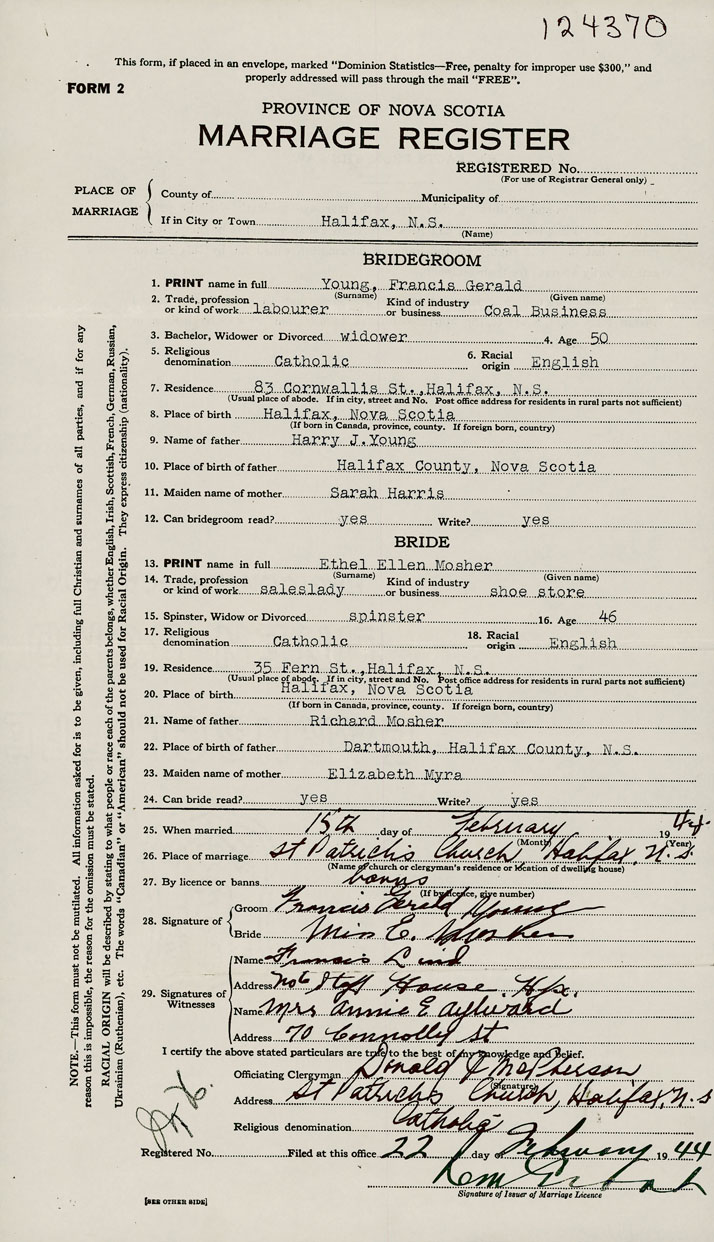 124370
This form, if placed in an envelope, marked "Dominion Statistics—Free, penalty for improper use $300," and
properly addressed will pass through the mail "FREE".
FORM 2
PROVINCE OF NOVA SCOTIA
MARRIAGE REGISTER
REGISTERED No.
(For use of Registrar General only)
PLACE OF MARRIAGE
County of Municipality of
If in City or Town Halifax, N.S.
(Name)
BRIDEGROOM
1. PRINT name in full Young, Francis Gerald
(Surname) (Given name)
2. Trade, profession or kind of work labourer Kind of industry or business Coal Business
3. Bachelor, Widower or Divorced widower 4. Age 50
5. Religious denomination Catholic 6. Racial origin English
7. Residence 83 Cornwallis St., Halifax, N.S.
(Usual place of abode. If in city, street and No. Post office address for residents in rural parts not sufficient)
8. Place of birth Halifax, Nova Scotia
(If born in Canada, province, county. If foreign born, country)
9. Name of father Harry J. Young
10. Place of birth of father Halifax County, Nova Scotia
11. Maiden name of mother Sarah Harris
12. Can bridegroom read? yes Write? yes
BRIDE
13. PRINT name in full Ethel Ellen Mosher
(Surname) (Given name)
14. Trade, profession or kind of work saleslady Kind of industry or business shoe store
15. Spinster, Widow or Divorced spinster 16. Age 46
17. Religious denomination Catholic 18. Racial origin English
19. Residence 35 Fern St., Halifax, N.S.
(Usual place of abode. If in city, street and No. Post office address for residents in rural parts not sufficient)
20. Place of birth Halifax, Nova Scotia
(If born in Canada, province, county. If foreign born, country)
21. Name of father Richard Mosher
22. Place of birth of father Dartmouth, Halifax County, N.S.
23. Maiden name of mother Elizabeth Myra
24. Can bride read? yes Write? yes
25. When married 15th day of February 1944
(Month) (Year)
26. Place of marriage St Patrick's Church, Halifax, N.S.
(Name of church or clergyman's residence or location of dwelling house)
27. By licence or banns banns
(If by licence, give number)
28. Signature of
Groom Francis Gerald Young
Bride Miss E. Mosher
29. Signatures of Witnesses
Name Francis Lind
Address House Hfx.
Name Mrs Annie E Aylward
Address 70 Connolly St
I certify the above stated particulars are true to the best of my knowledge and belief.
Officiating Clergyman Donald J McPherson
(Signature)
Address St Patrick's Church, Halifax, N.S
Religious denomination Catholic
Registered No. Filed at this office 22 day of February 1944
Signature of Issuer of Marriage Licence
[SEE OTHER SIDE]
NOTE.—This form must not be mutilated. All information asked for is to be given, including full Christian and surnames of all parties, and if for any
reason this is impossible, the reason for the omission must be stated.
RACIAL ORIGIN will be described by stating to what people or race each of the parents belongs, whether English, Irish, Scottish, French, German, Russian,
Ukrainian (Ruthenian), etc. The words "Canadian" or "American" should not be used for Racial Origin. They express citizenship (nationality).